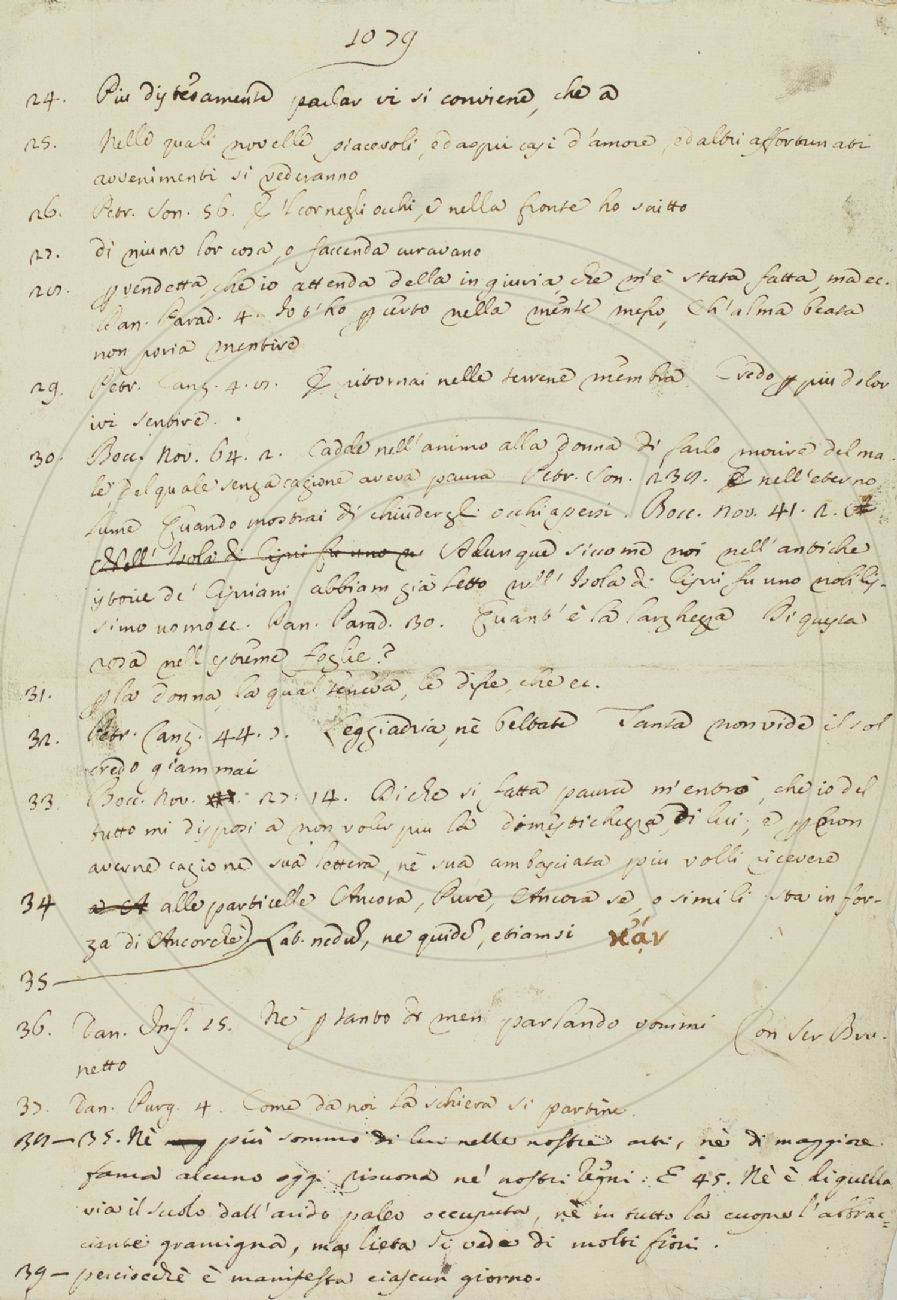 1079
24. Piu distesamente parlar vi si conviene, che a
25. Nelle quali novelle piacevoli, ed aspri casi d'amore, ed altri affortunati
avvenimenti si vederanno
26. Petr. Son. 56. E 'l cor negli occhi, e nella fronte ho scritto
27. di niuna lor cosa, o faccenda curavano
28. p vendetta, che io attenda della ingiuria, che m'è stata fatta, ma ec.
Dan. Parad. 4. Io t'ho p certo nella mente messo, Ch'alma beata
non poria mentire
29. Petr. Canz. 4. 8. E ritornai nelle terrene membra Credo p piu dolor
ivi sentire.
30. Bocc. Nov. 64. 2. Cadde nell'animo alla donna di farlo morire del ma-
le, del quale senza cagione aveva paura Petr. Son. 238. E nell'eterno
lume Quando mostrai di chiudergli occhi apersi. Bocc. Nov. 41. 2.
Nell' Isola di Cipri fu uno n Adunque siccome noi nell'antiche
istorie de' Cipriani abbiam già letto nell' Isola di Cipri fu uno nobilis-
simo uomo ec. Dan. Parad. 30. Quant' è la larghezza Di questa
rosa nell' estreme foglie?
31. p la donna, la qual teneva, le disse, che ec.
32. Petr. Canz. 44. 7. Leggiadria, nè beltate Tanta non vide il sol
credo giammai
33. Bocc. Nov. 27: 14. Di che si fatta paura m'entrò, che io del
tutto mi disposi a non voler piu la dimestichezza di lui; e p non
averne cagione sua lettera, nè sua ambasciata piu volli ricevere
34 alle particelle Ancora, Pure, Ancora se, o simili sta in for-
za di Ancorchè) Lat. nedu, ne quidē, etiamsi κἄν
35—
36. Dan. Inf. 15. Nè p tanto di men parlando vommi Con ser Bru-
netto
37. Dan. Purg. 4. Come da noi la schiera si partine.
38—35. Nè più sommo di lui nelle nostre arti, nè di maggiore
fama alcuno oggi risuona ne' nostri Regni: E 45. Nè è di quella
via il suolo dall'arido paleo occupata, nè in tutto la cuopre l'abbrac-
ciante gramigna, ma lieta si vede di molti fiori.
39—perciocchè è manifesta ciascun giorno.